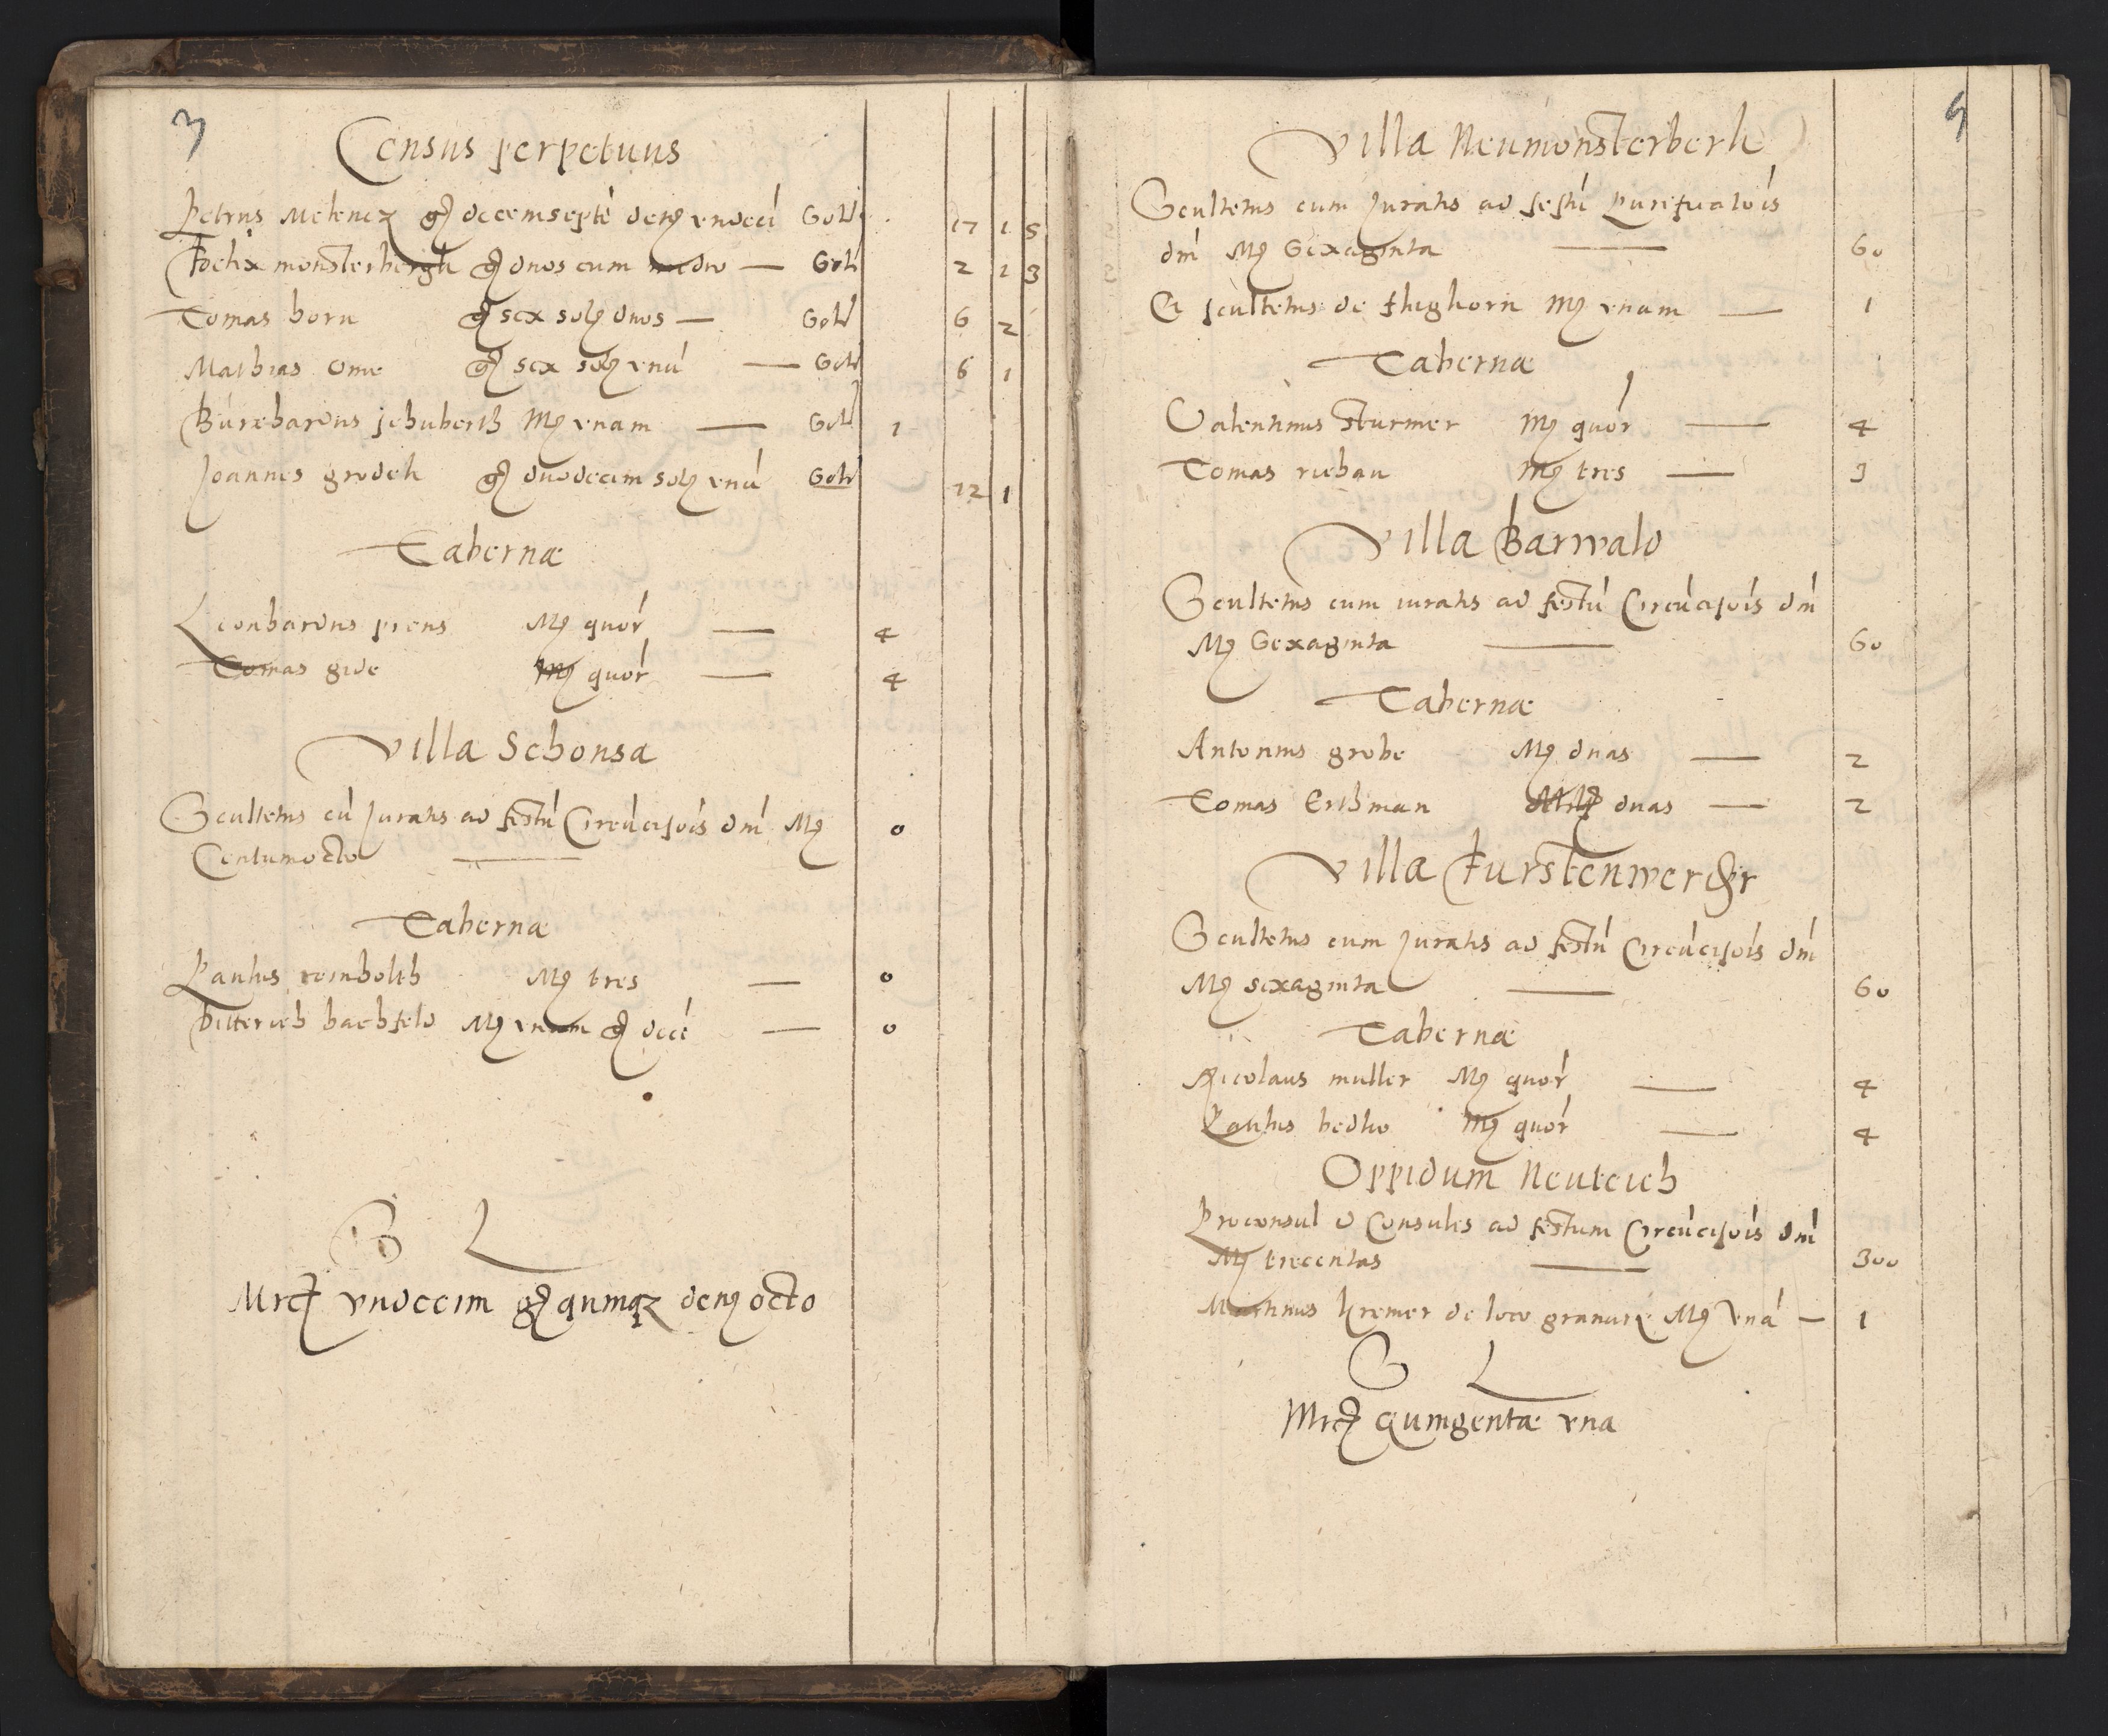 3
Census perpetuus
Petrus Melencz gr decemsepte den undeci Solt 17 1 5
Foelix monsterbergk gr duos cum medio — Solt 2 1 3
Tomas born gr sex sol duos — Solt 6 2
Mathias Ome gr sex sol unu — Solt 6 1
Burchardus schuberth Mr unam — Solt 1
Joannes grodek gr duodecim sol unu Solt 12 1
Tabernæ
Leonhardus prens Mr quor — 4
Tomas gide Mr quor — 4
Villa Schonsa
Scultetus cu Juratis ad festu Circucisois dni Mr 0
Centumocto —
Tabernæ
Paulus reinbolth Mr tres — 0
Ditterich bachfeld Mr unam gr dece — 0
S L
Mrc undecim gr quinqz den octo
4
Villa Neumonsterberk
Scultetus cum Juratis ad festu Purificatois
dni Mr Sexaginta — 60
Et scultetus de Mr unam — 1
Tabernæ
Valentinus Sturmer Mr quor — 4
Tomas rieban Mr tres — 3
Villa Barwald
Scultetus cum iuratis ad festu Circucisois dni
Mr Sexaginta — 60
Tabernæ
Antonius grobe Mr duas — 2
Tomas Erthman Mr duas — 2
Villa Furstenwerder
Scultetus cum Juratis ad festu Circucisois dni
Mr sexaginta — 60
Tabernæ
Nicolaus muller Mr quor — 4
Paulus hedko Mr quor — 4
Oppidum Neuteich
Proconsul & Consules ad festum Circucisois dni
Mr trecentas — 300
Martinus kremer de loco granarie Mr Una — 1
S L
Mrc quingentæ una